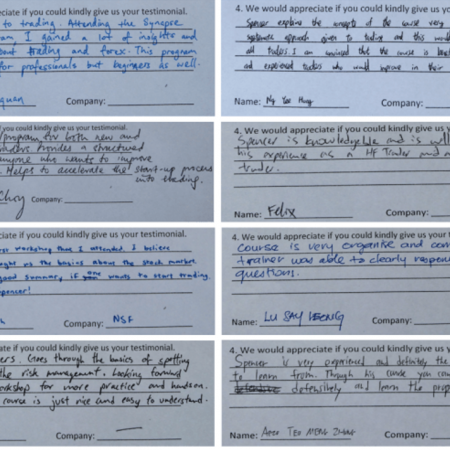 ciate if you could kindly give us your testimonial.
to trading. Attending the Synapse
am I gained a lot of insights and
out trading and forex. This program
for professionals but beginners as well.
Company:
4. We would appreciate if you could kindly give us yo
Spencer explains the concepts of the course very
approach given to trading and this would
all traders. I am convinced that the course is
and experienced traders who would improve in their
Name:
Company:
you could kindly give us your testimonial.
program for both new and
provides a structured
anyone who wants to improve
. Helps to accelerate the start-up process
into trading.
Choy
Company:
4. We would appreciate if you could kindly give us y
Spencer is knowledgeable and is will
his experience as a HF Trader and
trader.
Name: Felix
Company:
ciate if you could kindly give us your testimonial.
workshop that I attended. I believe
me the basics about the stock market.
good summary, if one wants to start trading.
Spencer!
Company: NSF
4. We would appreciate if you could kindly give us your
Course is very organise and con
trainer was able to clearly respon
questions.
Name: LU SAY LEONG
Company:
ate if you could kindly give us your testimonial.
ers. Goes through the basics of spotting
the risk management. Looking forward
workshop for more practice and hands on.
course is just nice and easy to understand.
Company:
4. We would appreciate if you could kindly give us y
Spencer is very experienced and definitely the
to learn from. Through his course you can
defensively and learn the prop
Name:
Company: